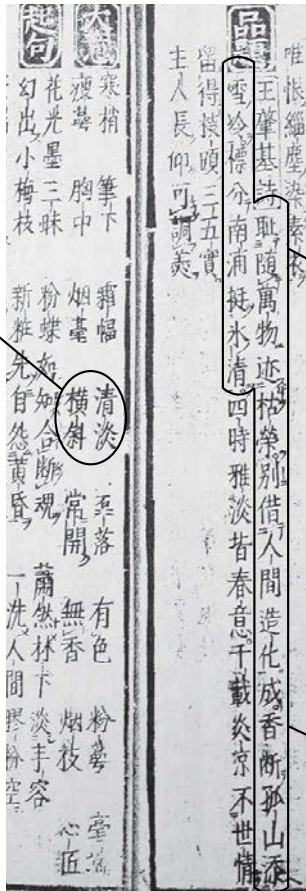 唯恨緇塵染素衣
品題
王肇基詩恥隨萬物迹枯榮別借人間造化成香斷孤山添
雪冷標分南浦挺氷清四時雅淡皆春意千載炎凉不世情
留得枝頭三五實
主人長仰可調羹
大意
寒梢 筆下 霜幅 清淡 落 有色 粉萼
瘦萼 胸中 烟毫 橫斜 常開 無香 烟枝 心匠
起句
花光墨三昧 粉蝶如知合斷魂 蕭然林下淡手容
幻出小梅枝 新粧先自怨黃昏 一洗人間膠粉空